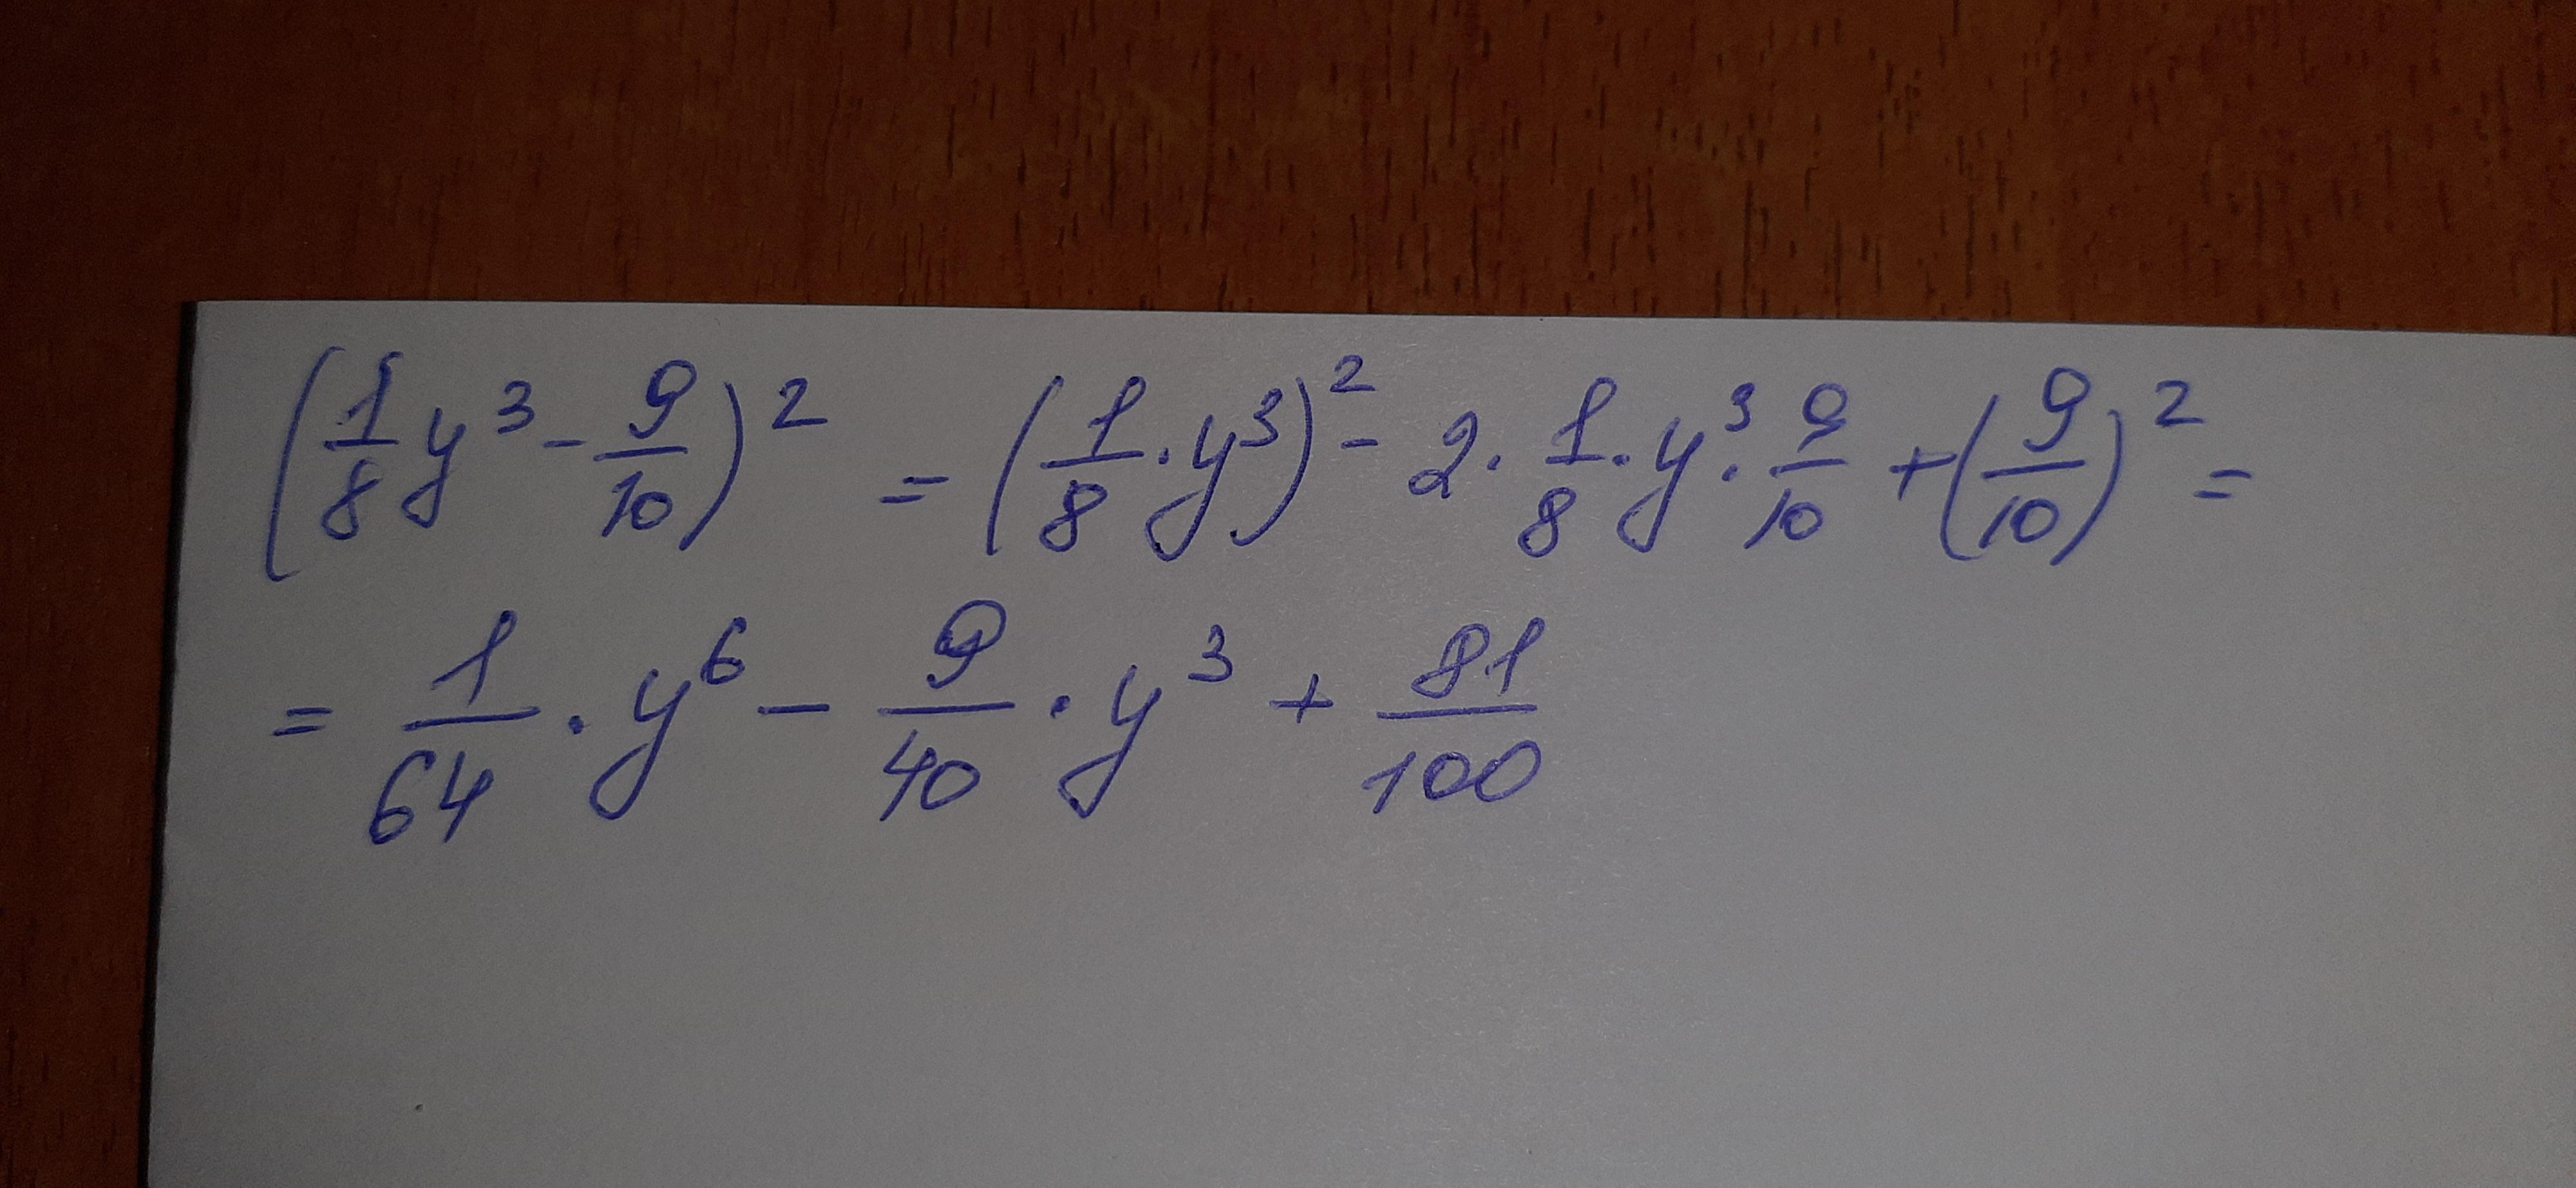 (1/8 y³ - 9/10)² = (1/8 · y³)² - 2 · 1/8 · y³ · 9/10 + (9/10)² =
= 1/64 · y⁶ - 9/40 · y³ + 81/100